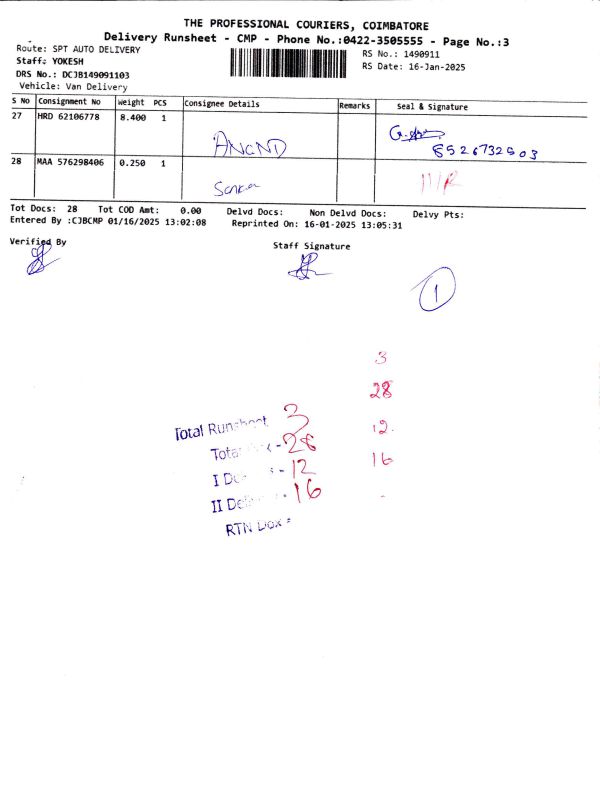 THE PROFESSIONAL COURIERS, COIMBATORE
Delivery Runsheet - CMP - Phone No.:0422-3505555 - Page No.:3
Route: SPT AUTO DELIVERY
RS No.: 1490911
Staff: YOKESH
RS Date: 16-Jan-2025
DRS No.: DCJB149091103
Vehicle: Van Delivery
S No Consignment No Weight PCS Consignee Details Remarks Seal & Signature
27 HRD 62106778 8.400 1
ANAND 8526732503
28 MAA 576298406 0.250 1
Tot Docs: 28 Tot COD Amt: 0.00 Delvd Docs: Non Delvd Docs: Delvy Pts:
Entered By :CJBCMP 01/16/2025 13:02:08 Reprinted On: 16-01-2025 13:05:31
Verified By
Staff Signature
1
3
28
12
16
Total Runsheet 3
Total - 28
I - 12
II - 16
RTN Dox